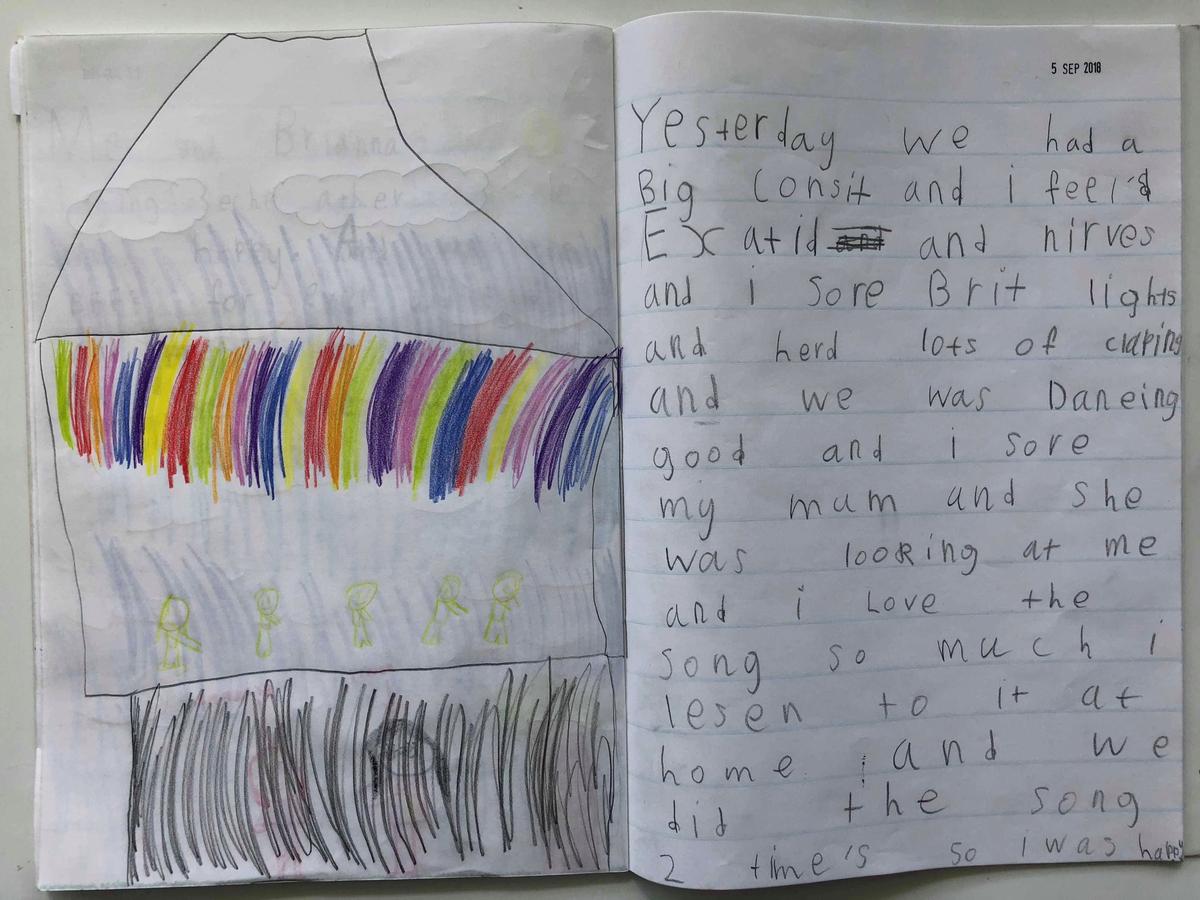 5 SEP 2018
Yesterday we had a
Big Consit and i feel'd
Exatid and nirves
and i sore Brit lights
and herd lots of claping
and we was Daneing
good and i sore
my mum and she
was looking at me
and i Love the
song so much i
lesen to it at
home and we
did the song
2 time's so i was happy